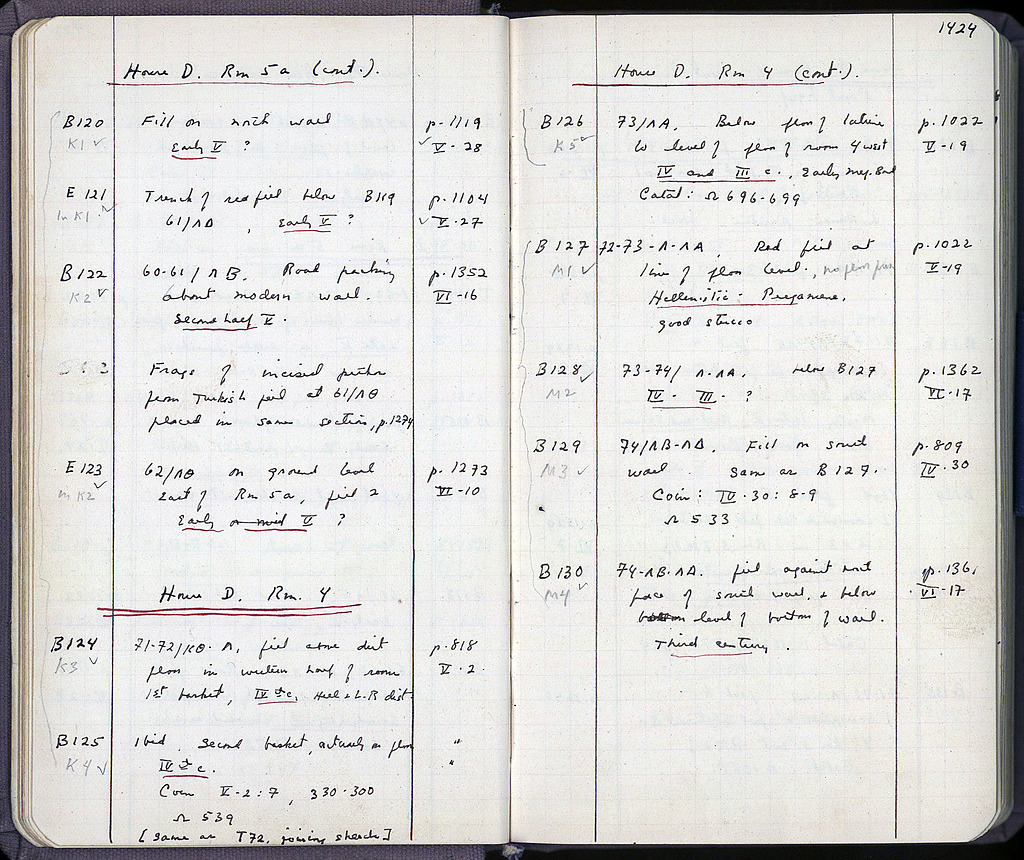 House D. Rm 5a (cont.).
B120 Fill on north wall p. 1119
K1 ✓ Early V ? ✓ V - 28
E 121 Trench of red fill below B119 p. 1104
In K1. ✓ 61/ΛΔ , Early V ? ✓ V - 27
B122 60-61/ΛB. Road packing p. 1352
K2 ✓ about modern wall. VI - 16
Second half V.
Frags of incised pithos
from Turkish fill at 61/ΛΘ
placed in same section, p. 1274
E 123 62/ΛΘ on ground level p. 1273
in K2 ✓ East of Rm 5a, fill 2 VI - 10
Early or mid V ?
House D. Rm. 4
B124 71-72/KΘ - Λ, fill above dist p. 818
K3 ✓ floor in western half of room V - 2.
1st basket, IV th c, Hell & L.R dist.
B125 Ibid. Second basket, actually on floor "
K4 ✓ IV th c. "
Coin V-2:7, 330-300
Ω 539
[Same as T72, joining sherds]
1424
House D. Rm 4 (cont.).
B126 73/ΛA. Below floor of latrine p. 1022
K5 ✓ to level of floor of room 4 west V - 19
IV and III c., Early Meg. Bowl
Catal: Ω 696-699
B127 72-73-Λ-ΛA, Red fill at p. 1022
M1 ✓ line of floor level., no floor found V - 19
Hellenistic - Pergamene,
good stucco
B128 ✓ 73-74/Λ-ΛA. below B127 p. 1362
M2 IV - III - ? VI - 17
B129 74/ΛB-ΛΔ. Fill on south p. 809
M3 ✓ wall. Same as B127. IV - 30
Coin: IV-30: 8-9
Ω 533
B130 74-ΛB-ΛA. fill against north p. 136
M4 ✓ face of south wall, & below VI - 17
level of bottom of wall.
Third century.